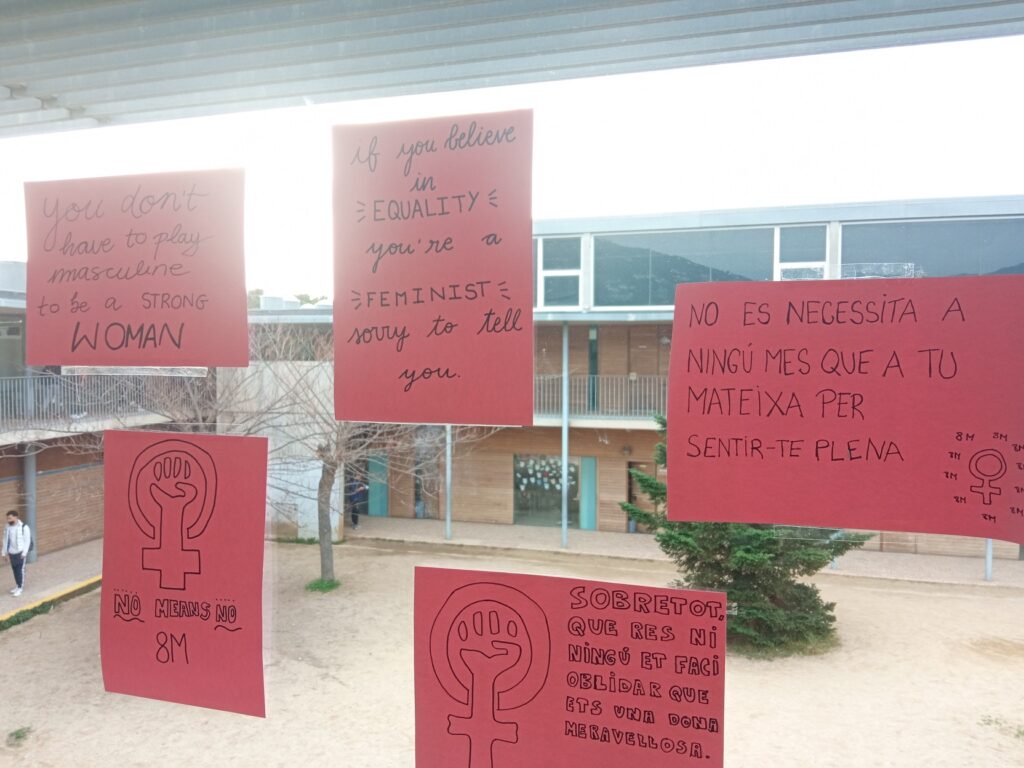 You don't
have to play
masculine
to be a STRONG
WOMAN
if you believe
in
EQUALITY
you're a
FEMINIST
sorry to tell
you.
NO ES NECESSITA A
NINGÚ MES QUE A TU
MATEIXA PER
SENTIR-TE PLENA
8M 8M
8M 8M
8M 8M
8M 8M
8M
NO MEANS NO
8M
SOBRETOT,
QUE RES NI
NINGÚ ET FACI
OBLIDAR QUE
ETS UNA DONA
MERAVELLOSA.